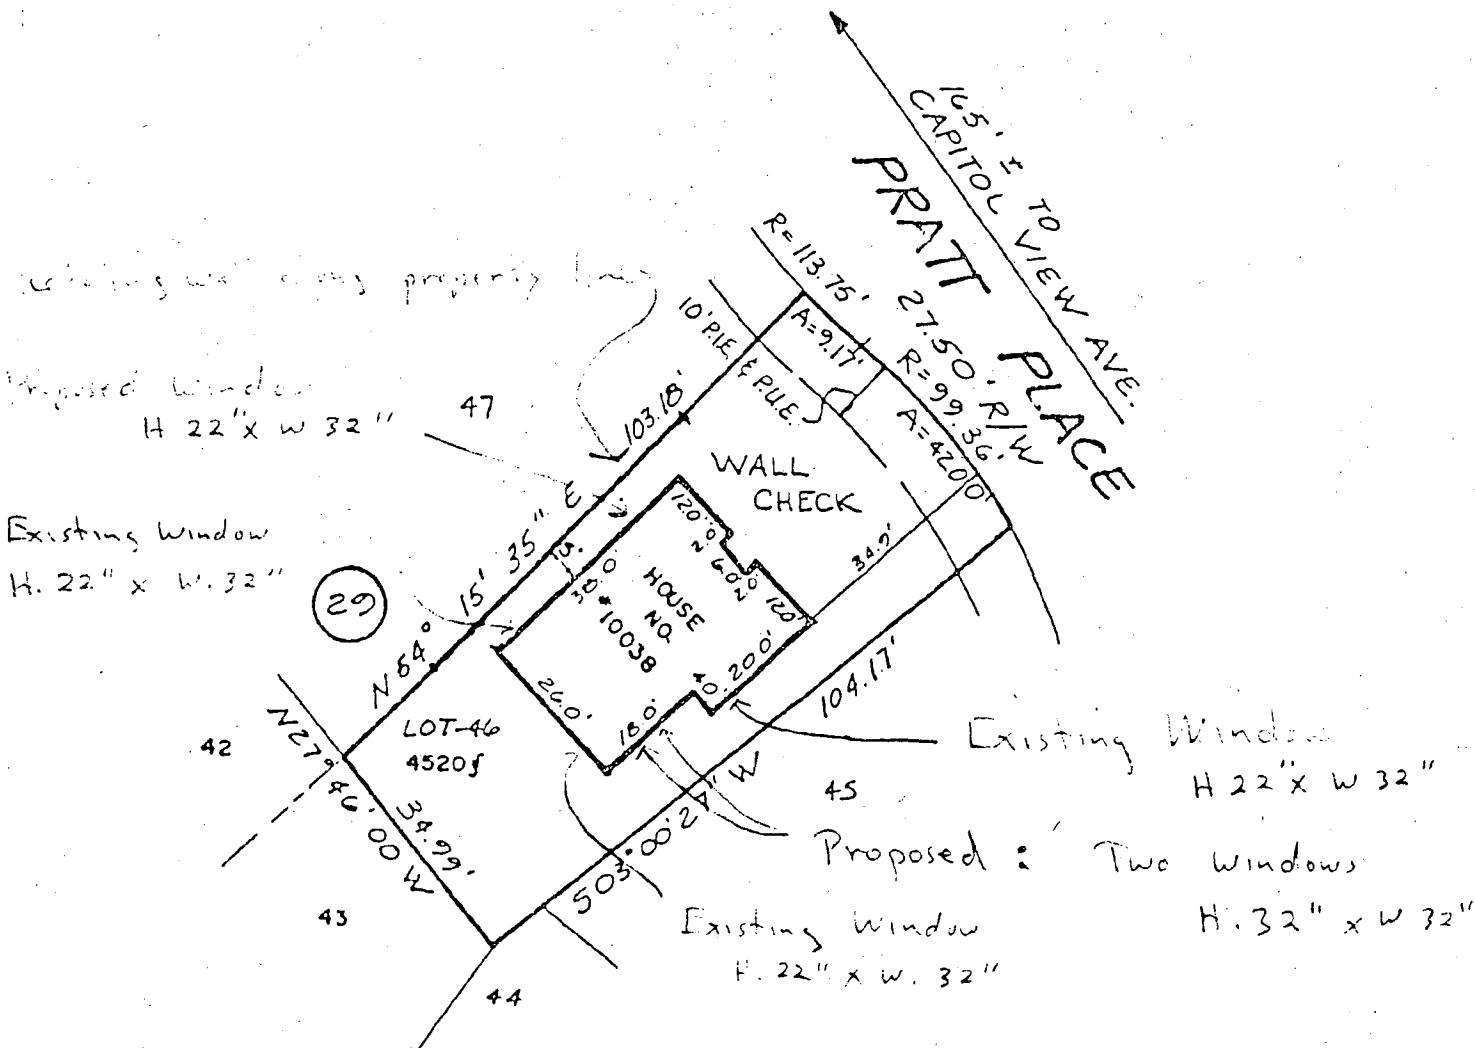 165' ± TO
CAPITOL VIEW AVE.
PRATT PLACE
27.50' R/W
R=113.75'
A=9.17'
R=99.36'
A=42.00'
10' P.I.E. & P.U.E.
along property line
Proposed Window
H 22" x W 32"
47
103.18'
WALL
CHECK
Existing Window
H. 22" x W. 32"
29
N 64° 15' 35" E
38.0'
12.0'
2.0
6.0
2.0
12.0'
34.9'
HOUSE
NO.
#10038
20.0'
4.0
18.0'
26.0'
104.17'
LOT-46
4520
42
N27° 46' 00 W
34.99'
S03° 00' 24" W
45
Existing Window
H 22" x W 32"
Proposed : Two Windows
H. 32" x W 32"
43
Existing Window
H. 22" x W. 32"
44